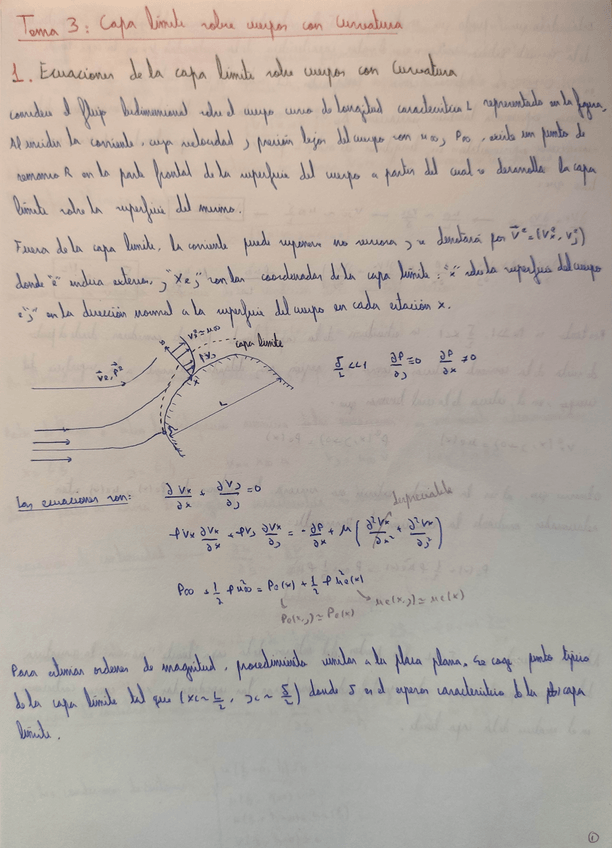 Tema 3: Capa límite sobre cuerpos con curvatura
1. Ecuaciones de la capa límite sobre cuerpos con curvatura
considere el flujo bidimensional sobre el cuerpo curvo de longitud característica L representado en la figura.
Al incidir la corriente, cuya velocidad y presión lejos del cuerpo son u∞, P∞, existe un punto de
remanso R en la parte frontal de la superficie del cuerpo a partir del cual se desarrolla la capa
límite sobre la superficie del mismo.
Fuera de la capa límite, la corriente puede suponerse no viscosa y se denotará por v⃗ᵉ=(vxᵉ, vyᵉ)
donde "e" indica exterior, y "x e y" son las coordenadas de la capa límite: "x" sobre la superficie del cuerpo
e "y" en la dirección normal a la superficie del cuerpo en cada estación x.
capa límite
δ/L <<1 ∂P/∂y ≅0 ∂P/∂x ≠0
v⃗e, Pᵉ
L
Las ecuaciones son: ∂Vx/∂x + ∂Vy/∂y =0
Despreciable
ρVx ∂Vx/∂x + ρVy ∂Vx/∂y = -∂P/∂x + μ(∂²Vx/∂x² + ∂²Vx/∂y²)
P∞ + 1/2 ρu²∞ = Pe(x) + 1/2 ρu²e(x)
Pe(x,y) ≃ Pe(x) ue(x,y) ≃ ue(x)
Para estimar ordenes de magnitud, procedimiento similar a la placa plana. Se coge punto típico
de la capa límite tal que (xc~L/2, yc~δ/2) donde δ es el espesor característico de la capa
límite.
1